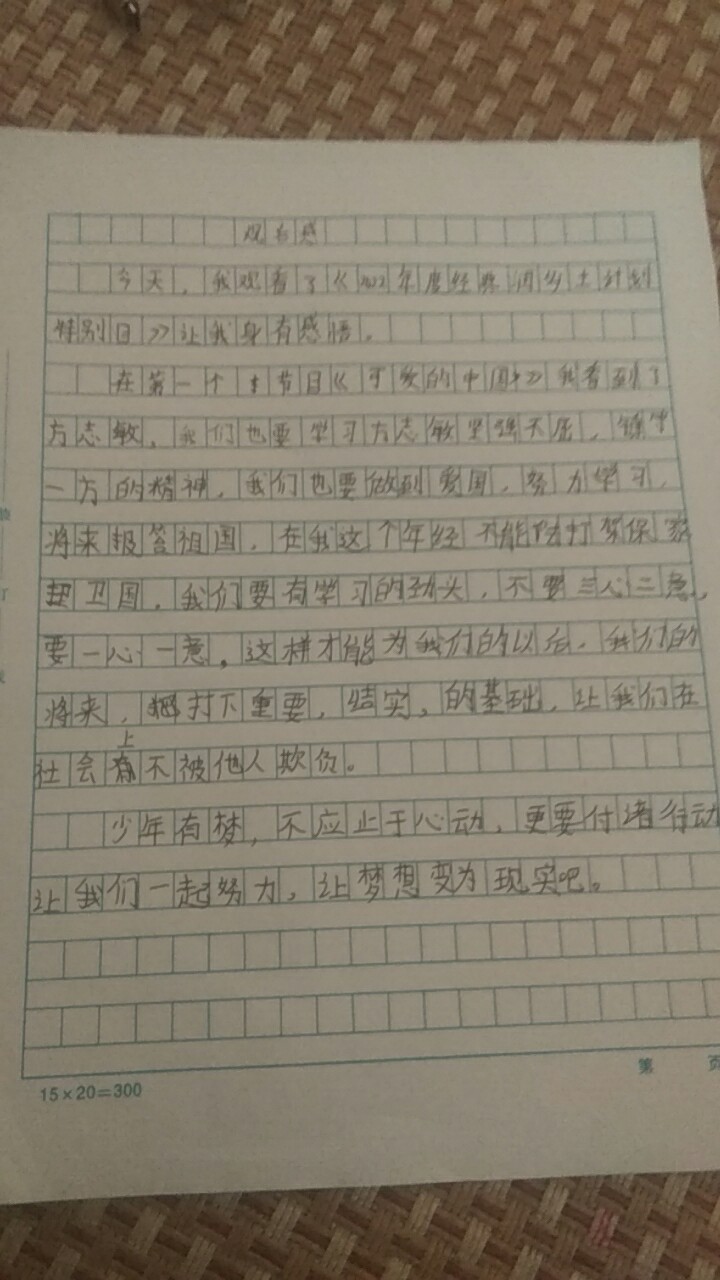 观后感
今天，我观看了《2022年度经典润乡土计划
特别日》让我身有感悟。
在第一个节目《可爱的中国》我看到了
方志敏，我们也要学习方志敏坚强不屈，镇守
一方的精神，我们也要做到爱国，努力学习，
将来报答祖国，在我这个年经不能陆打架保家
卫国，我们要有学习的劲头，不要三心二意，
要一心一意，这样才能为我们的以后，我们的
将来，打下重要，结实，的基础，让我们在
社会上不被他人欺负。
少年有梦，不应止于心动，更要付诸行动
让我们一起努力，让梦想变为现实吧。
15×20=300
第 页